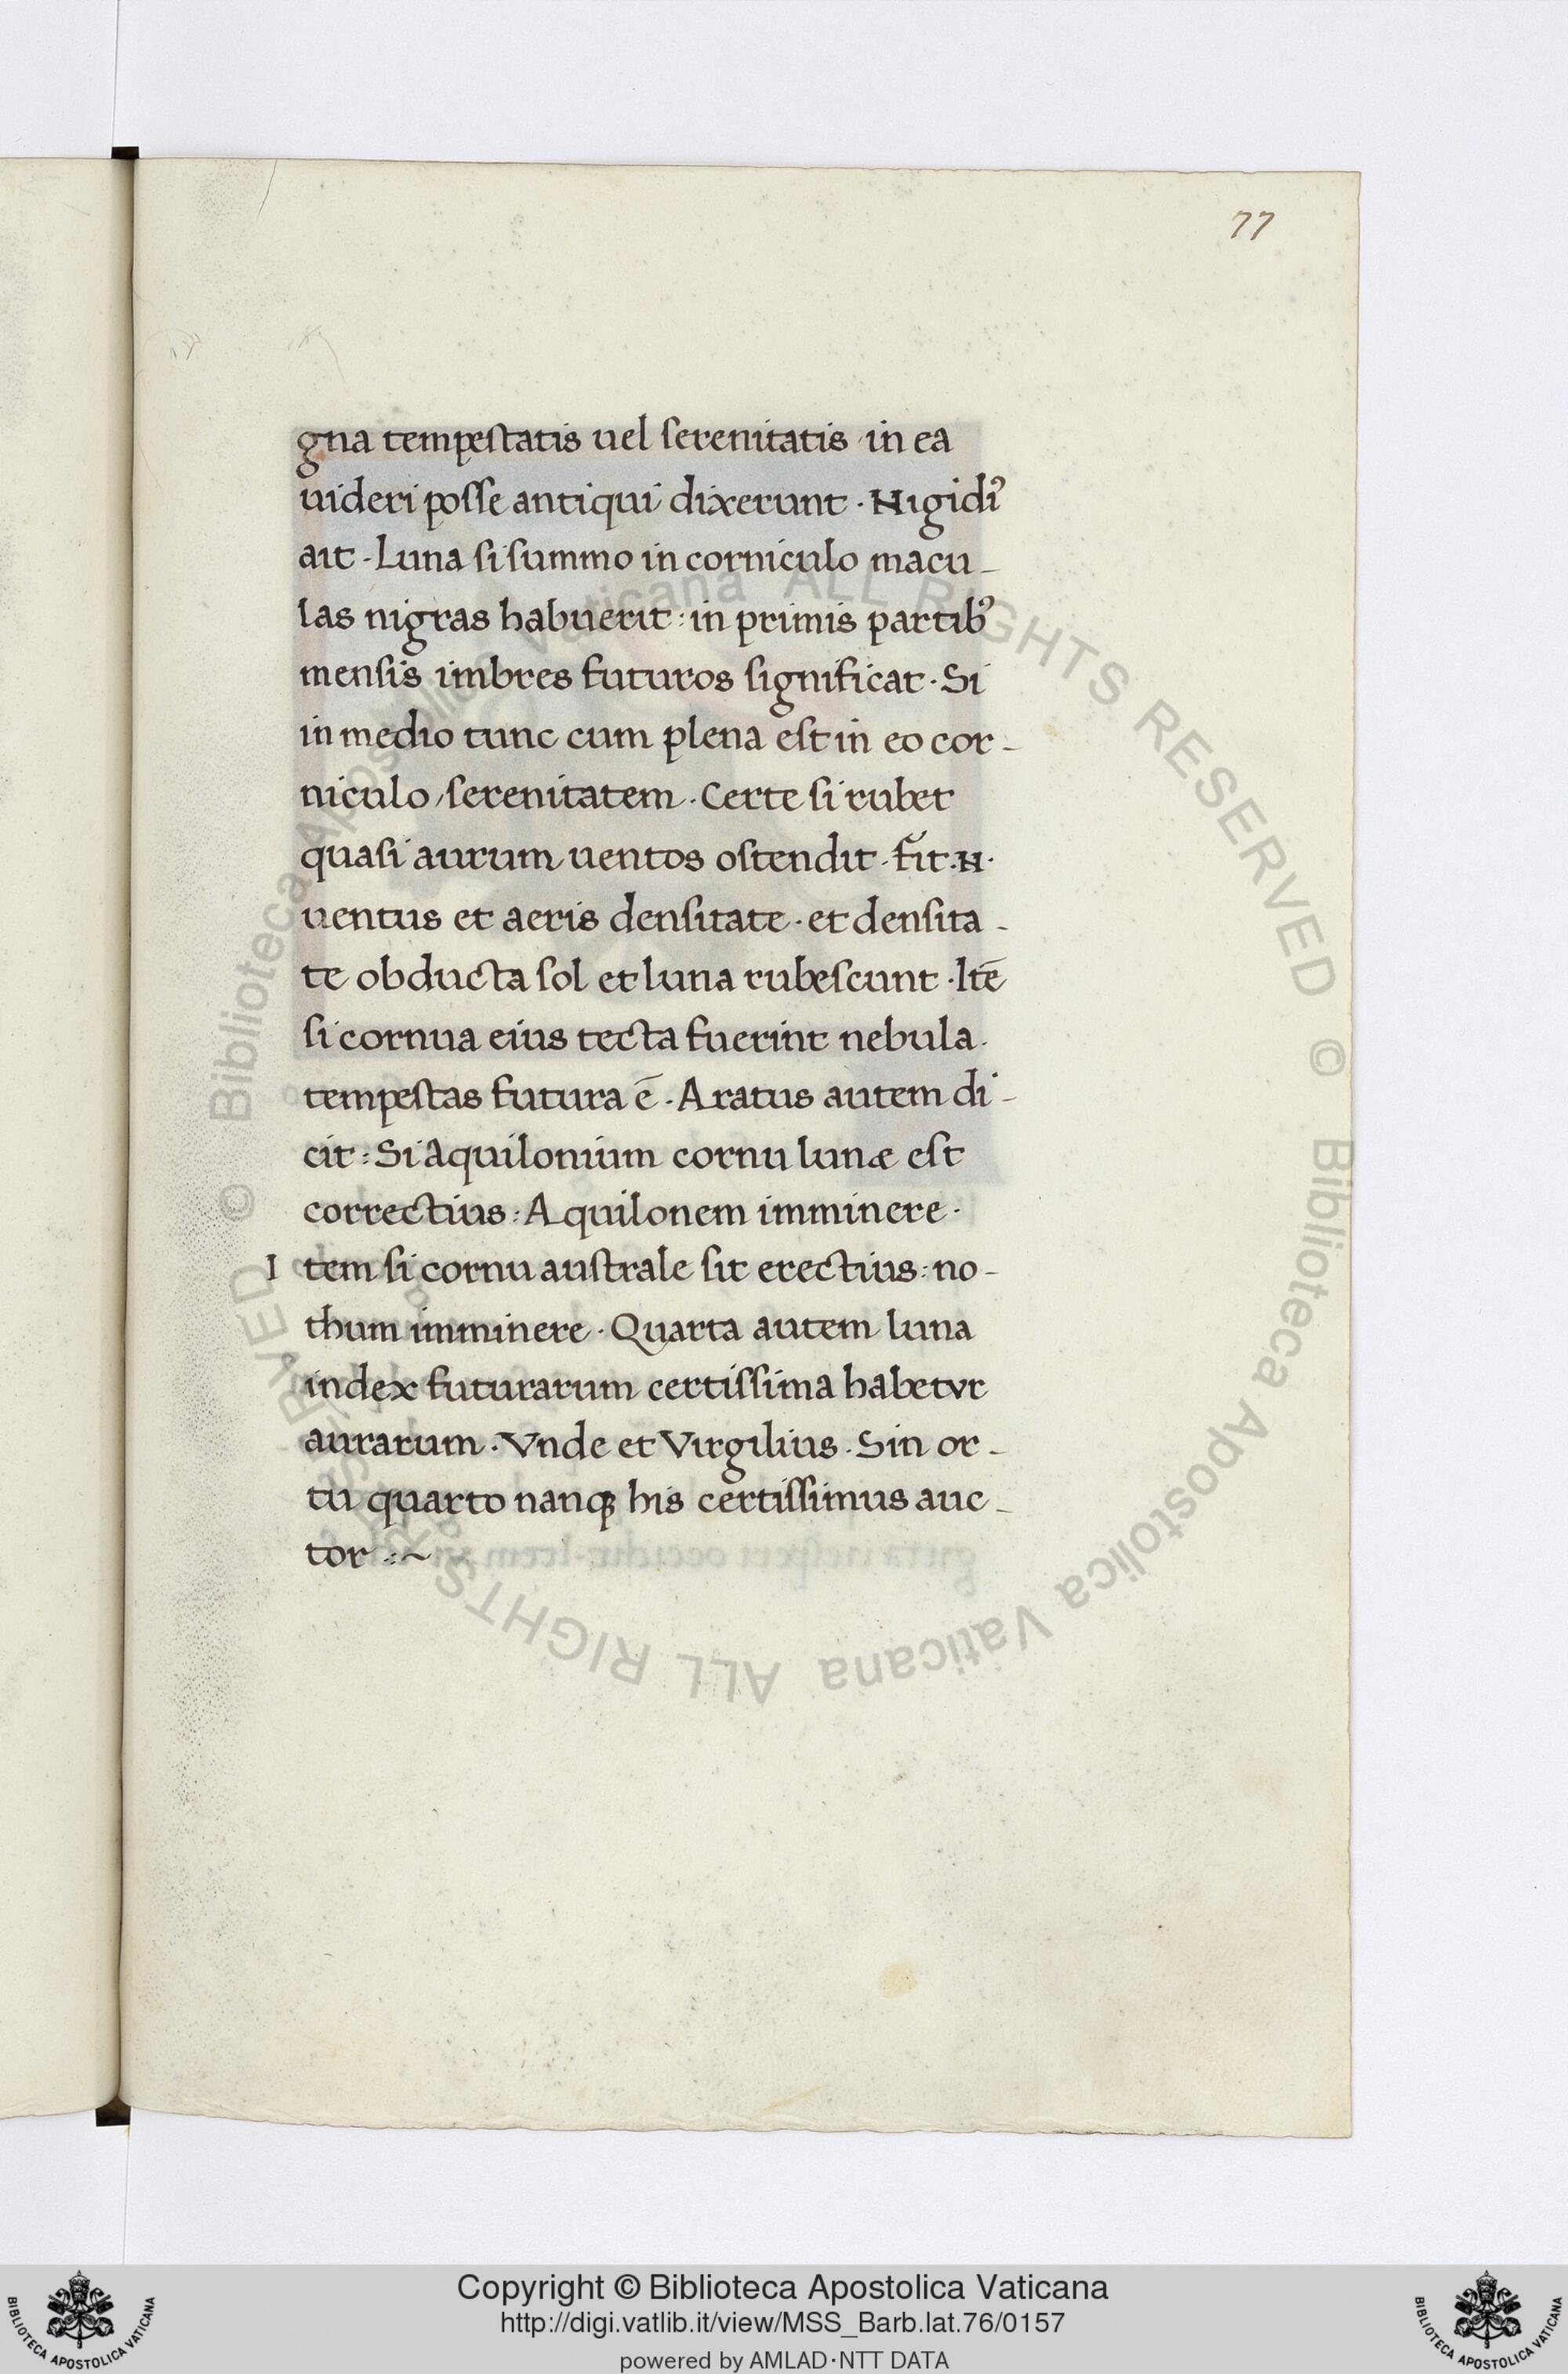 77
gna tempeſtatis uel ſerenitatis in ea
uideri poſſe antiqui dixerunt · Nigidi᾽
ait · Luna ſi ſummo in corniculo macu-
las nigras habuerit : in primis partib᾽
menſis imbres futuros ſignificat · Si
in medio tunc cum plena eſt in eo cor-
niculo / ſerenitatem · Certe ſi rubet
quaſi aurum uentos oſtendit · fit .N.
uentus et aeris denſitate · et denſita-
te obducta ſol et luna rubeſcunt · Itē
ſi cornua eius tecta fuerint nebula ·
tempeſtas futura ē · Aratus autem di-
cit : Si Aquilonium cornu lunæ eſt
correctius : Aquilonem imminere ·
I tem ſi cornu auſtrale ſit erectius : no-
thum imminere · Quarta autem luna
index futurarum certiſſima habetvr
aurarum · Vnde et Virgilius · Sin or-
tu quarto nanqꝫ his certiſſimus auc-
tor :~
© Biblioteca Apostolica Vaticana ALL RIGHTS RESERVED © Biblioteca Apostolica Vaticana ALL RIGHTS RESERVED
Copyright © Biblioteca Apostolica Vaticana
http://digi.vatlib.it/view/MSS_Barb.lat.76/0157
powered by AMLAD·NTT DATA
BIBLIOTECA APOSTOLICA VATICANA
BIBLIOTECA APOSTOLICA VATICANA